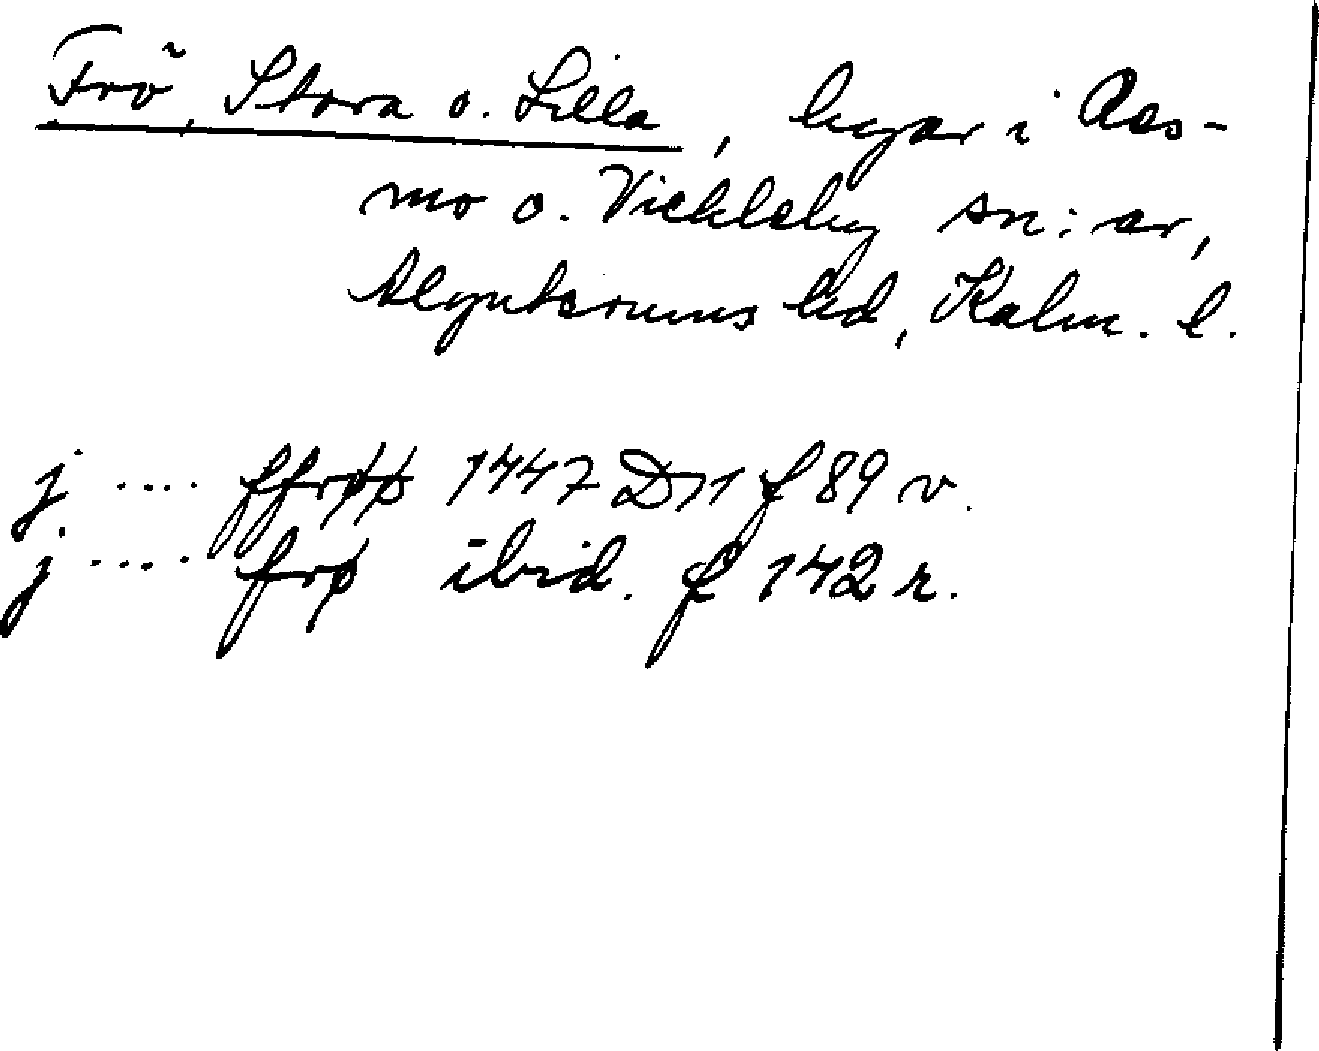 Frö, Stora o. Lilla, byar i Res-
mo o. Vickleby sn:ar,
Algutsrums hd, Kalm. l.
j .... ffrøø 1447 D 11 f 89 v.
j .... frø ibid. f 142 r.